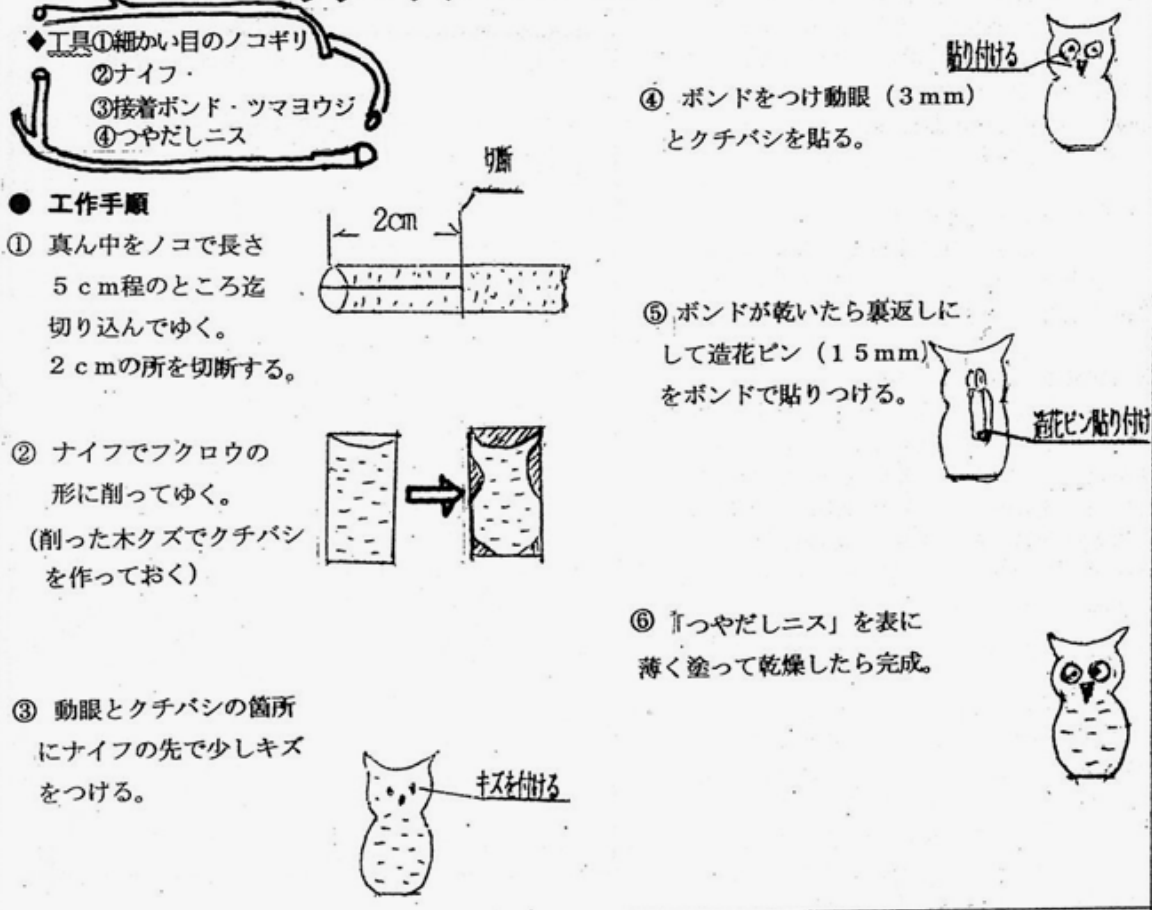 ◆工具①細かい目のノコギリ
②ナイフ・
③接着ボンド・ツマヨウジ
④つやだしニス
● 工作手順
① 真ん中をノコで長さ
5cm程のところ迄
切り込んでゆく。
2cmの所を切断する。
2cm
切断
② ナイフでフクロウの
形に削ってゆく。
(削った木クズでクチバシ
を作っておく)
③ 動眼とクチバシの箇所
にナイフの先で少しキズ
をつける。
キズを付ける
④ ボンドをつけ動眼(3mm)
とクチバシを貼る。
貼り付ける
⑤ ボンドが乾いたら裏返しに
して造花ピン(15mm)
をボンドで貼りつける。
造花ピン貼り付け
⑥ 『つやだしニス」を表に
薄く塗って乾燥したら完成。